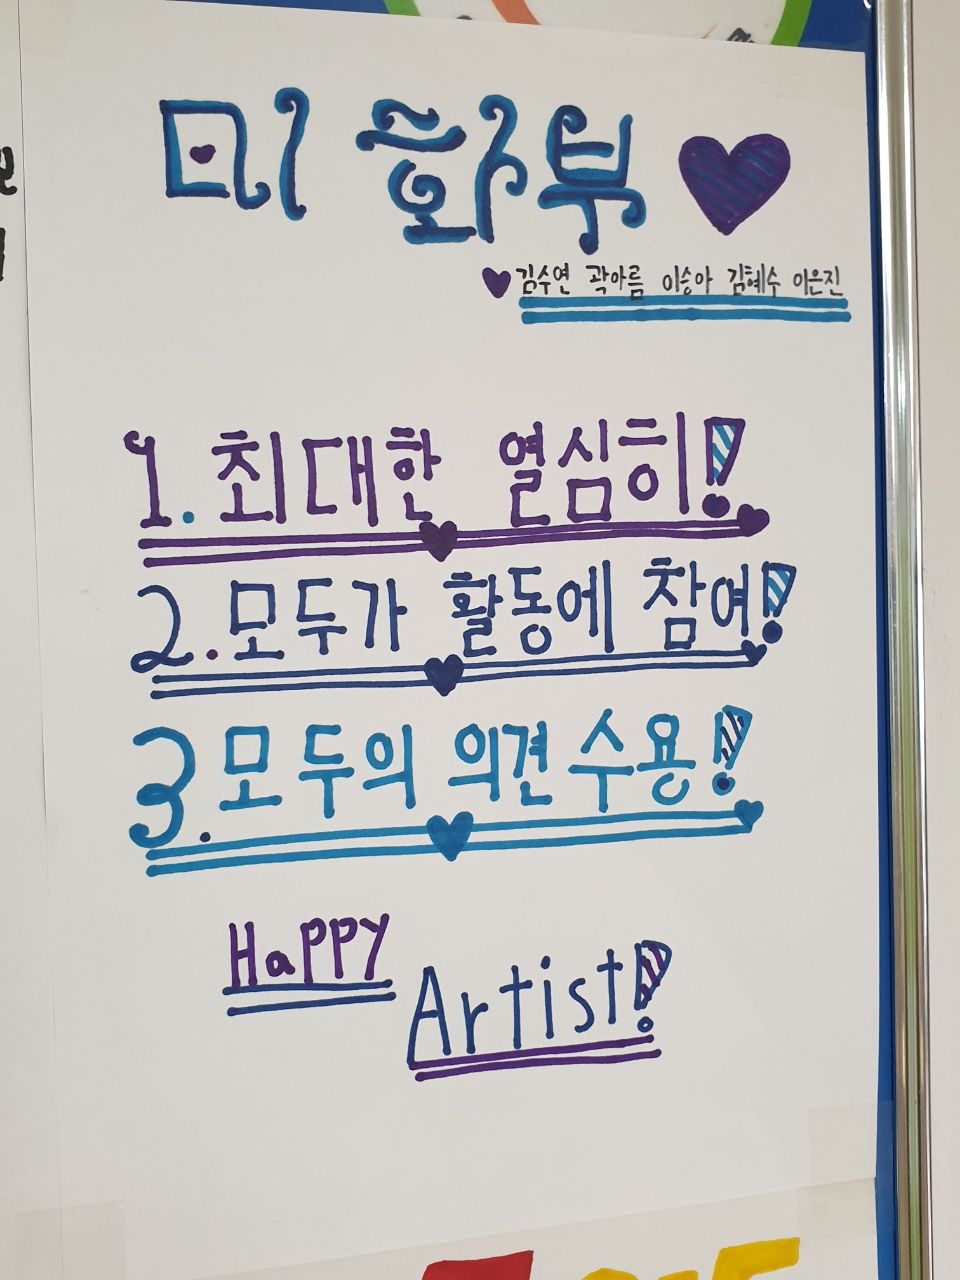 미화부
김수연 곽아름 이승아 김혜수 이은진
1. 최대한 열심히!
2. 모두가 활동에 참여!
3. 모두의 의견 수용!
Happy
Artist!